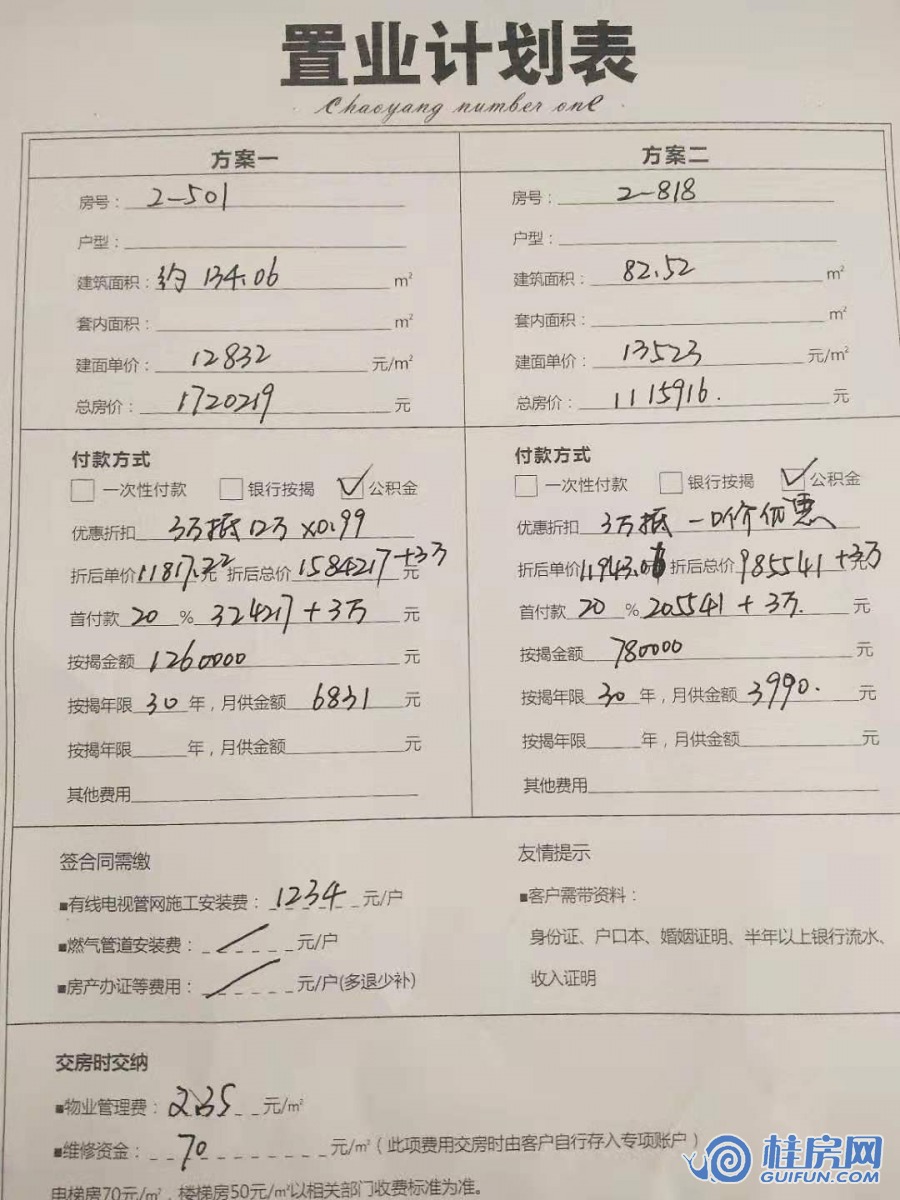 置业计划表
Chaoyang number one
方案一
房号：2-501
户型：
建筑面积：约 134.06 m²
套内面积： m²
建面单价：12832 元/m²
总房价：1720219 元
付款方式
一次性付款 银行按揭 公积金
优惠折扣 3万抵12万 x0.99
折后单价 11817.22元 折后总价 1584217+3万 元
首付款 20 % 324217+3万 元
按揭金额 1260000 元
按揭年限 30 年，月供金额 6831 元
按揭年限 年，月供金额 元
其他费用
方案二
房号：2-818
户型：
建筑面积：82.52 m²
套内面积： m²
建面单价：13523 元/m²
总房价：1115916. 元
付款方式
一次性付款 银行按揭 公积金
优惠折扣 3万抵 一口价优惠
折后单价 11943.0 折后总价 985541+3万
首付款 20 % 205541+3万. 元
按揭金额 780000 元
按揭年限 30 年，月供金额 3990. 元
按揭年限 年，月供金额 元
其他费用
签合同需缴
■有线电视管网施工安装费：1234 元/户
■燃气管道安装费： 元/户
■房产办证等费用： 元/户(多退少补)
友情提示
■客户需带资料：
身份证、户口本、婚姻证明、半年以上银行流水、
收入证明
交房时交纳
■物业管理费：2.35 元/m²
■维修资金：70 元/m²（此项费用交房时由客户自行存入专项账户）
电梯房70元/m²，楼梯房50元/m²以相关部门收费标准为准。
桂房网
GUIFUN.COM